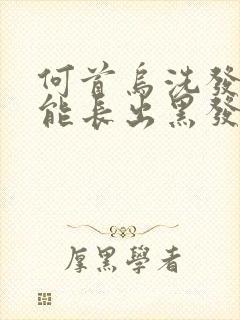 何首烏洗發
能長出黑發
厚黑學者